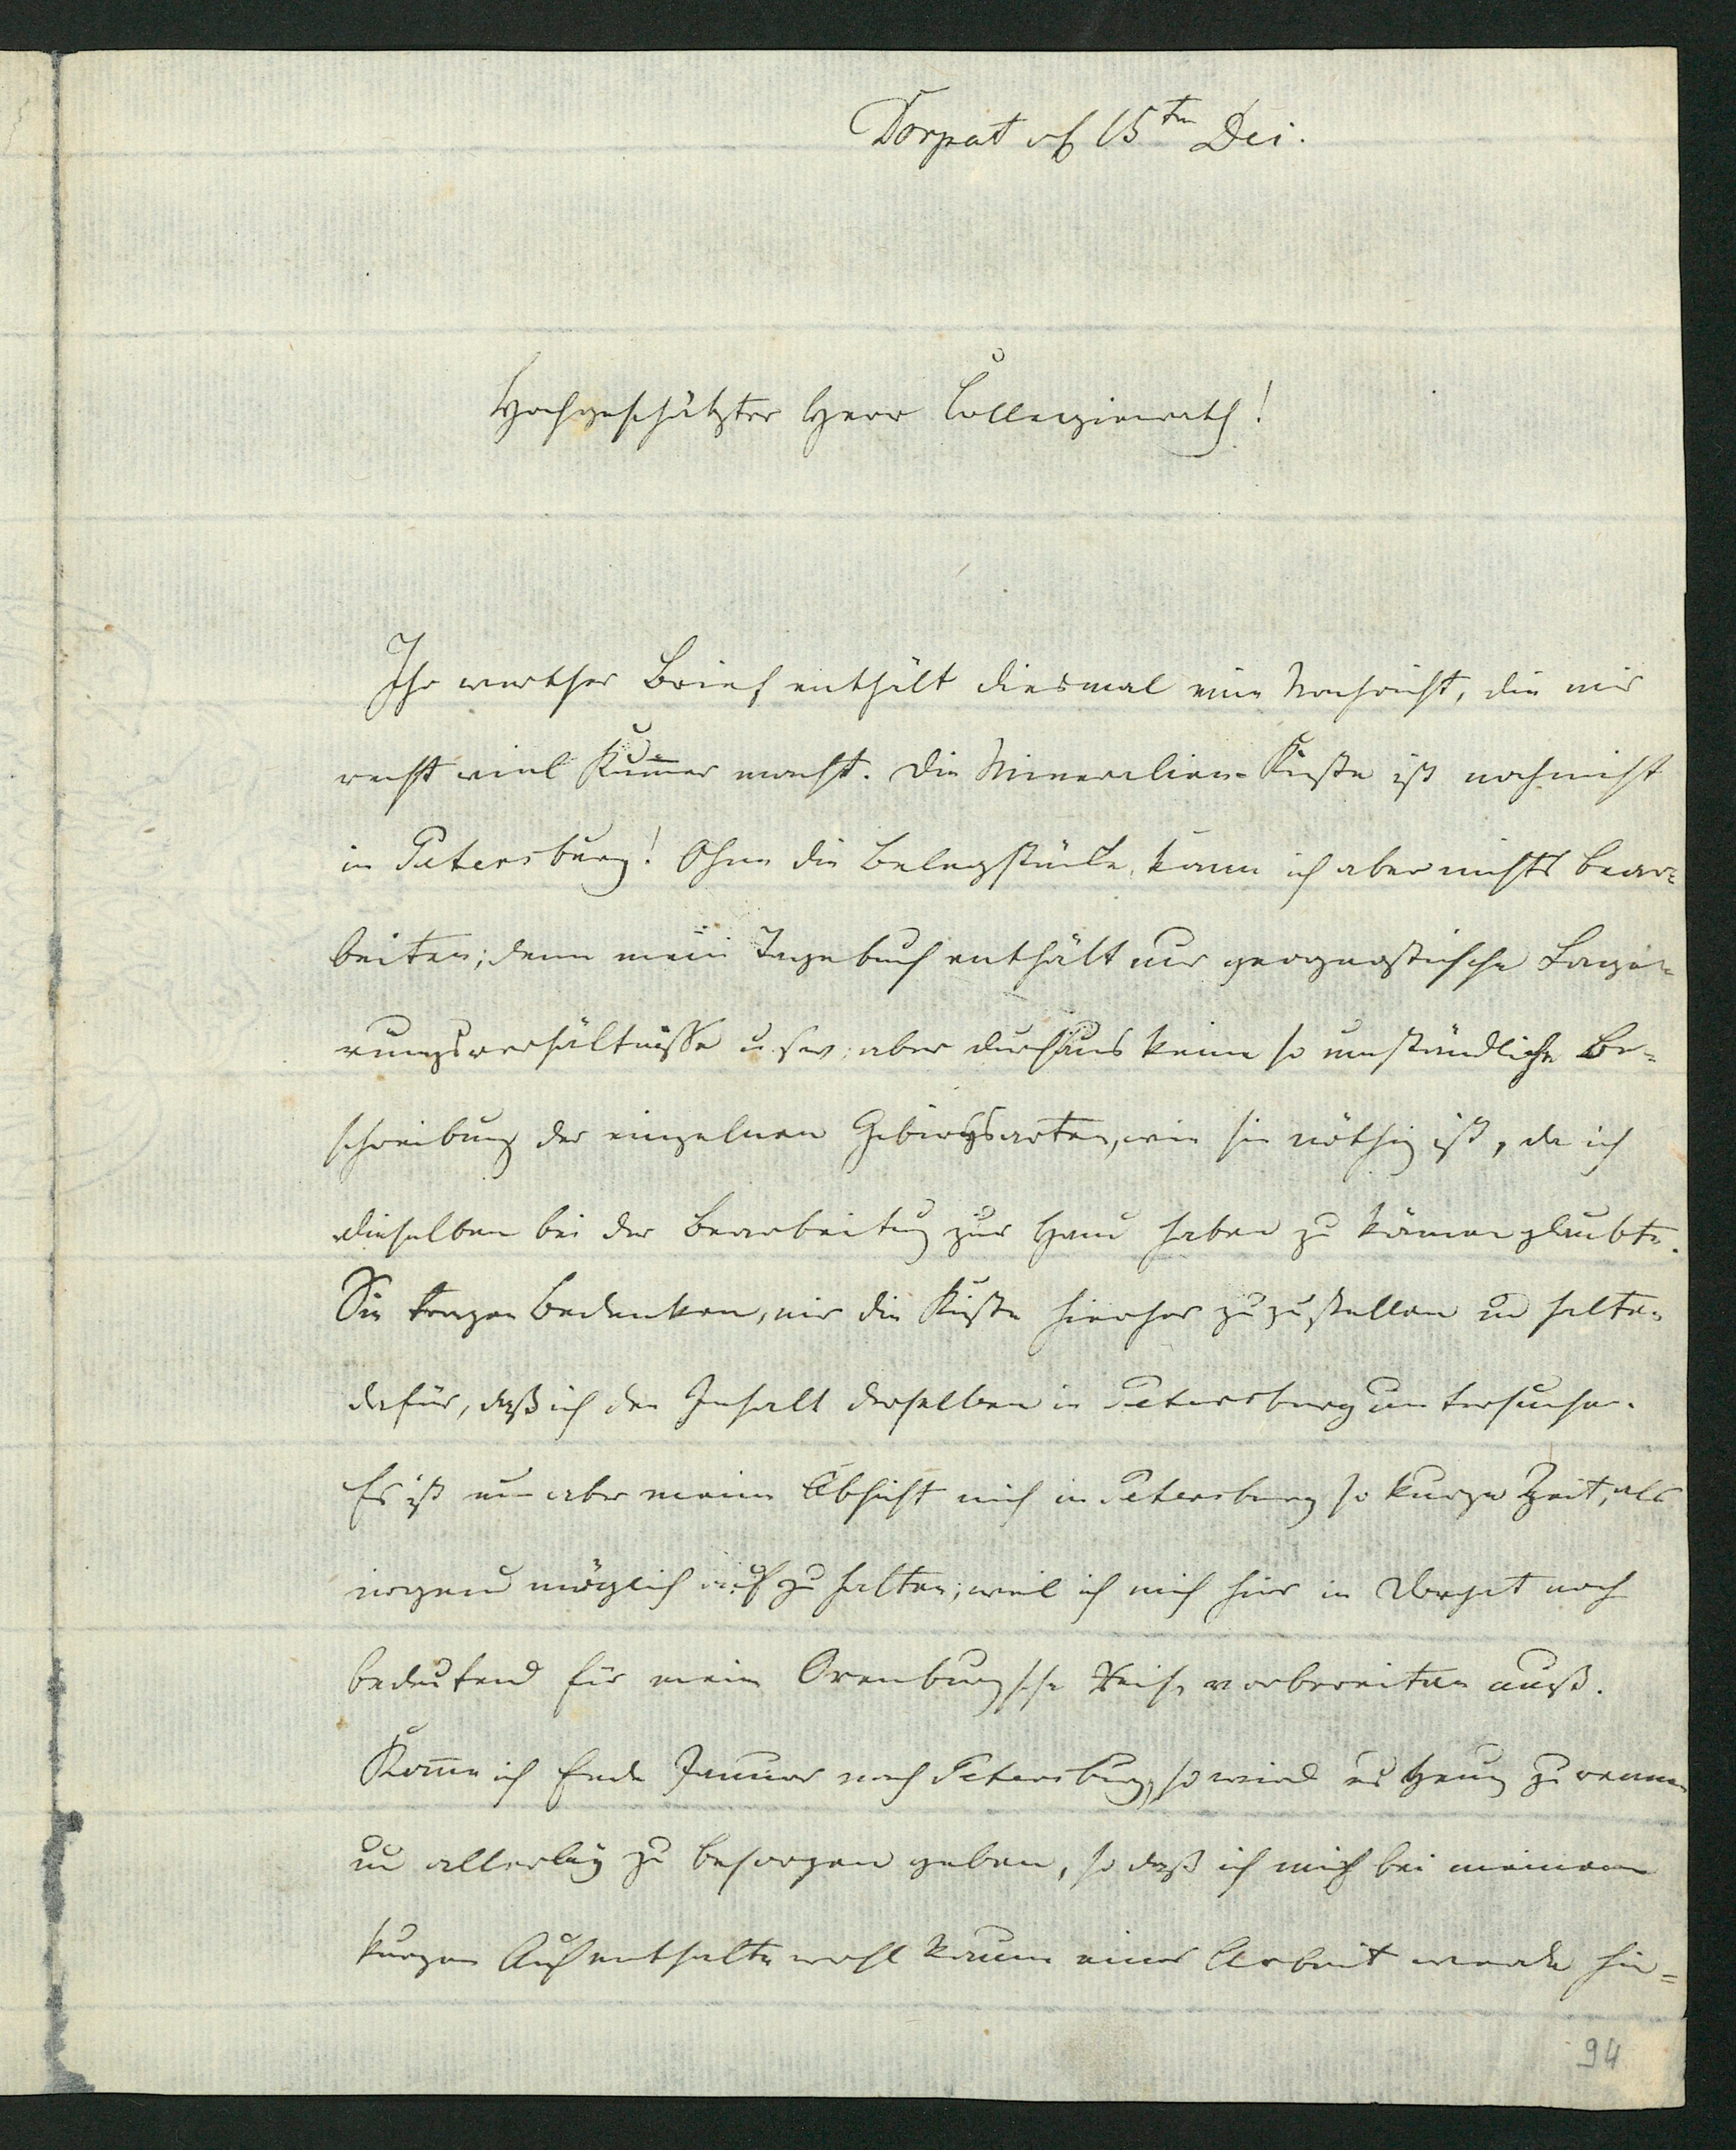 Dorpat d 15ten Dec.
Hochgeschätzter Herr Collegienrath!
Ihr werther Brief enthält diesmal eine Nachricht, die mir
recht viel Kum̅er macht. Die Mineralien-Kiste ist noch nicht
in Petersburg! Ohne die Belegstücke kann ich aber nichts bear-
beiten; denn mein Tagebuch enthält nur geognostische Lage-
rungsverhältnisse u.s.w. aber durchaus keine so umständliche Be-
schreibung der einzelnen Gebirgsarten, wie sie nöthig ist, da ich
dieselben bei der Bearbeitung zur Hand haben zu können glaubte.
Sie tragen Bedenken, mir die Kiste hierher zuzustellen und halten
dafür, daß ich den Inhalt derselben in Petersburg untersuche.
Es ist nun aber meine Absicht mich in Petersburg so kurze Zeit, als
irgend möglich aufzuhalten; weil ich mich hier in Dorpat noch
bedeutend für meine Orenburgsche Reise vorbereiten muß.
Kom̅e ich Ende Januar nach Petersburg, so wird es genug zu rennen
und allerley zu besorgen geben, so daß ich mich bei meinem
kurzen Aufenthalte wohl kaum einer Arbeit werde hin-
94